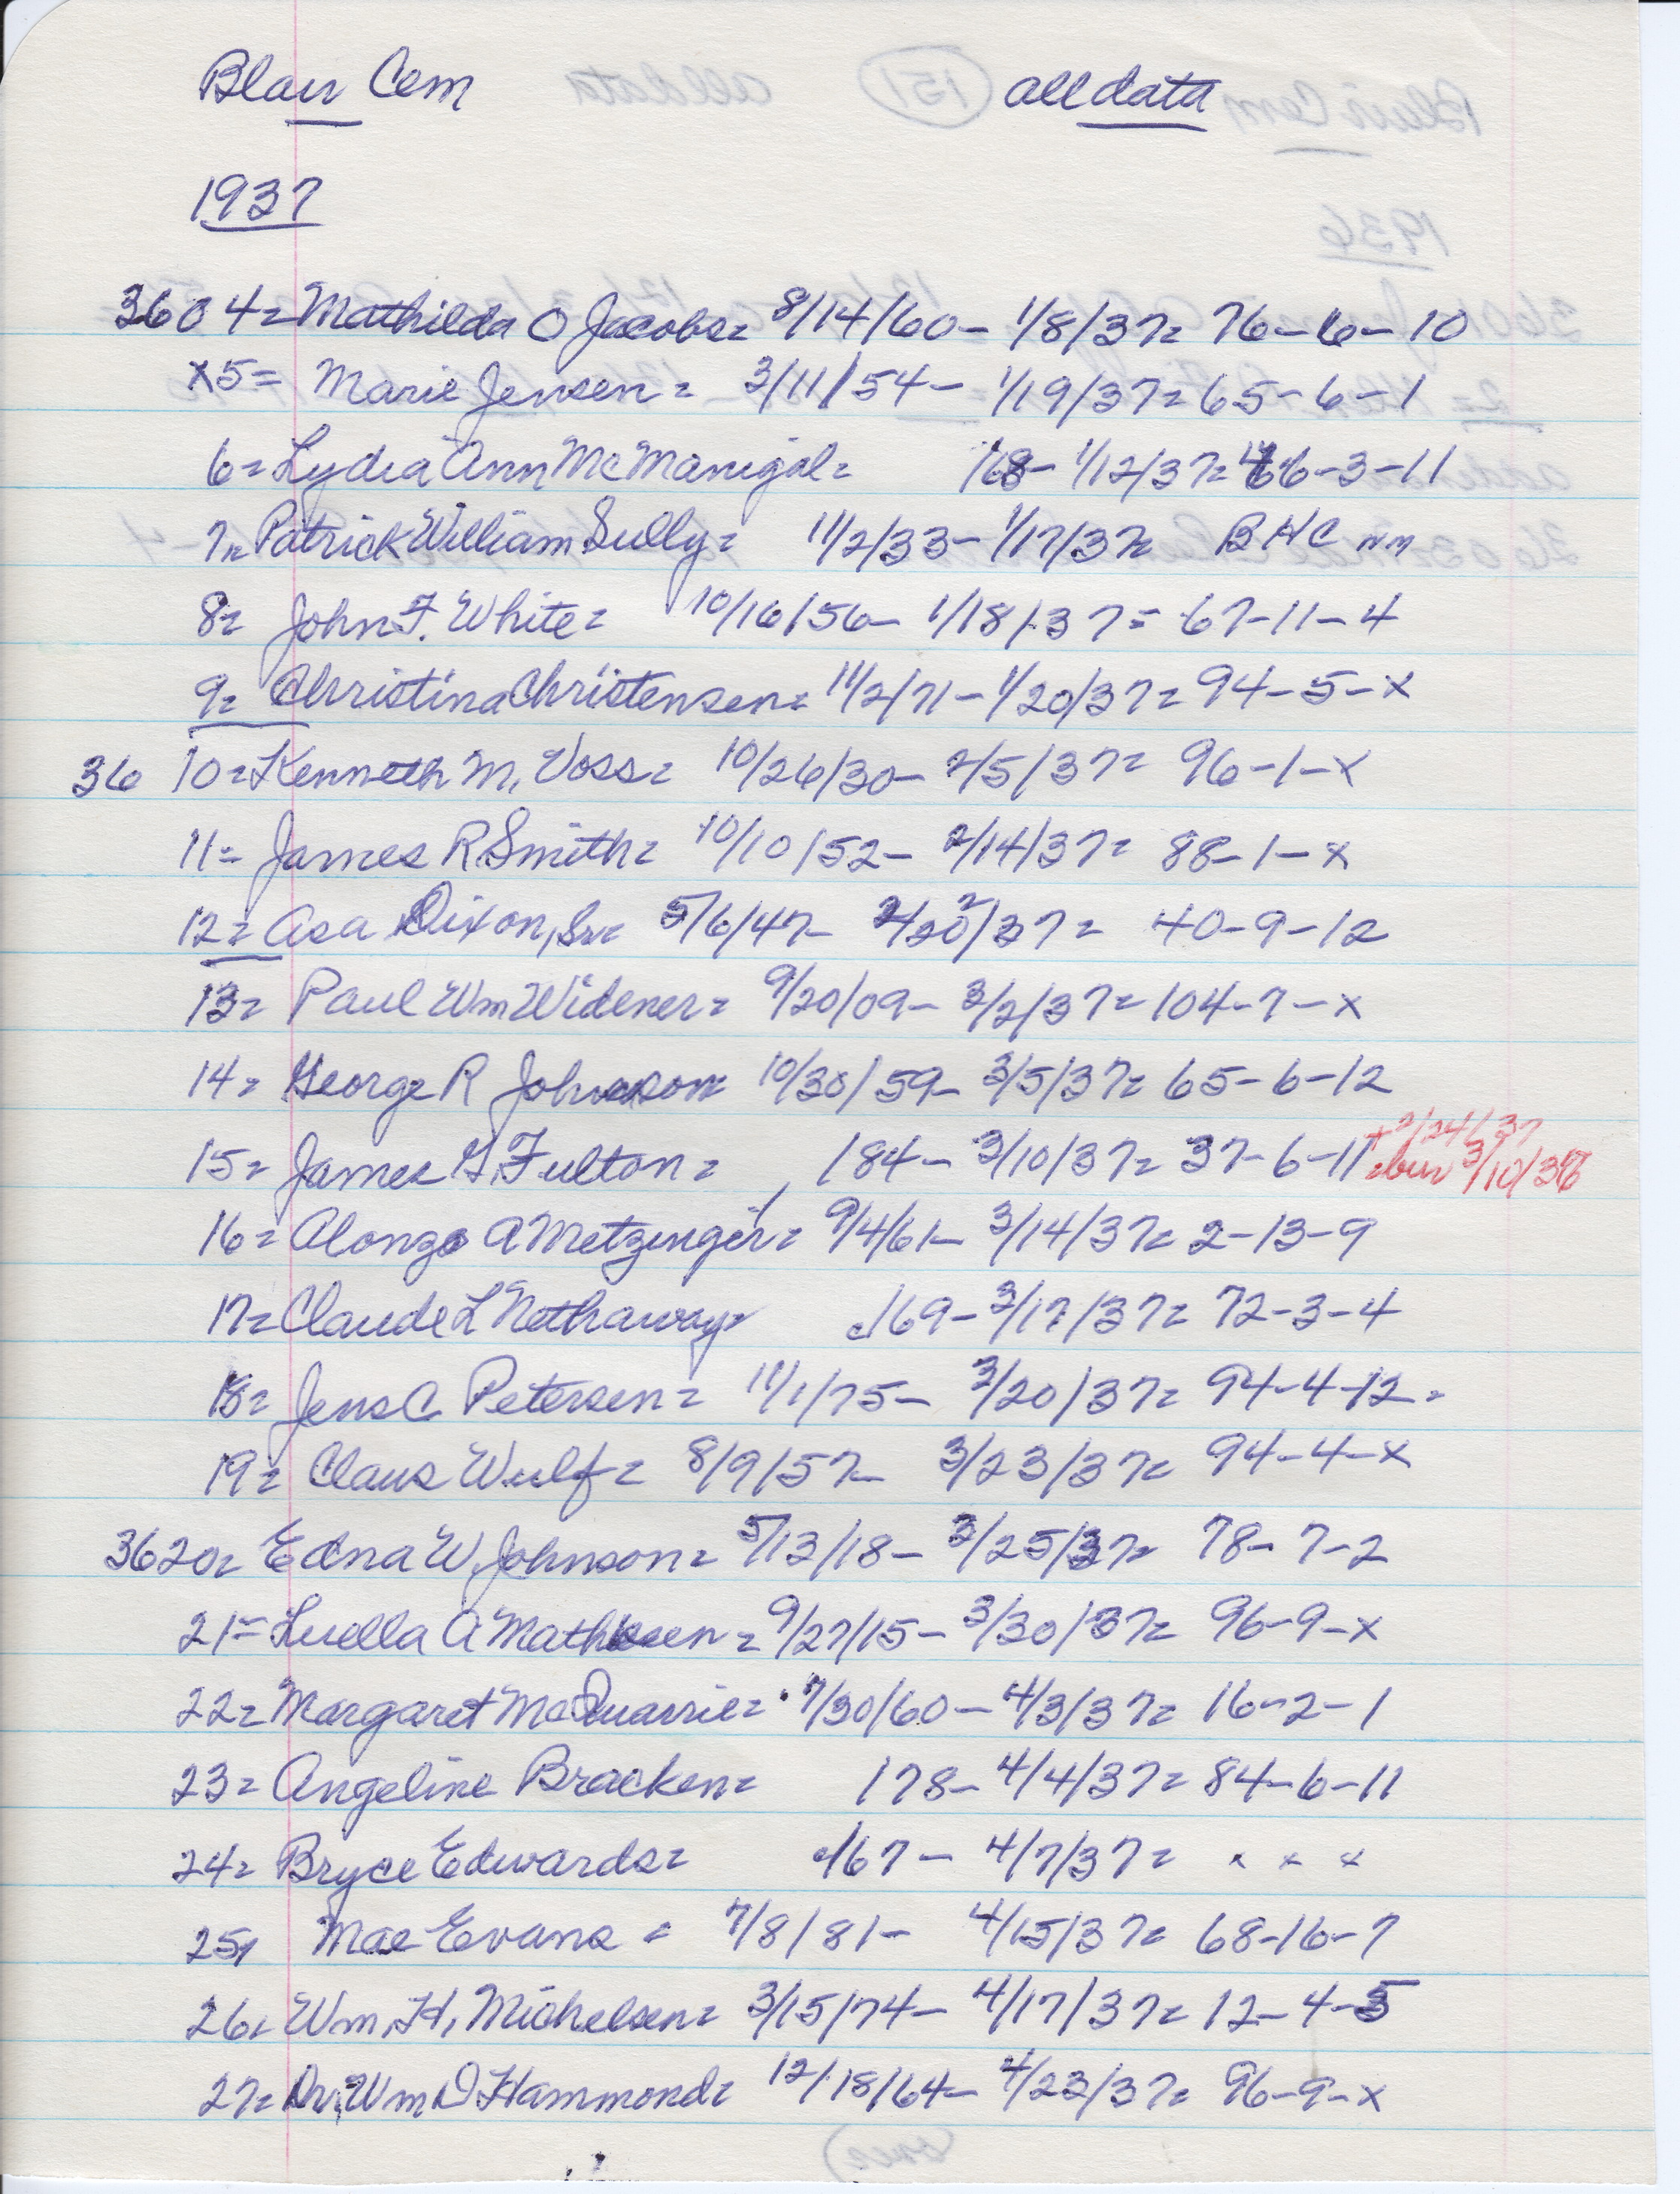 Blair Cem all data
1937
3604= Mathilda O Jacobs= 8/14/60- 1/8/37= 76-6-10
x5= Marie Jensen= 3/11/54- 1/19/37= 65-6-1
6= Lydia Ann McManigal= 1/12/37= 66-3-11
7= Patrick William Sully= 11/2/33- 1/17/37= BHC nm
8= John F. White= 10/16/56- 1/18/37= 67-11-4
9= Christina Christensen= 11/2/71- 1/20/37= 94-5-x
36 10= Kenneth M. Voss= 10/26/30- 2/5/37= 96-1-x
11= James R Smith= 10/10/52- 2/14/37= 88-1-x
12= Asa Dixon, Sr= 5/6/47- 40-9-12
13= Paul Wm Widener= 9/20/09- 3/2/37= 104-7-x
14= George R Johnson= 10/30/59- 3/5/37= 65-6-12
+ 2/24/37
15= James G. Fulton= 184- 3/10/37= 37-6-11 bur 3/10/37
16= Alonzo A Metzinger= 9/4/61- 3/14/37= 2-13-9
17= Claude L Nethaway= 169- 3/17/37= 72-3-4
18= Jens C Petersen= 11/1/75- 3/20/37= 94-4-12=
19= Claus Wulf= 8/9/57- 3/23/37= 94-4-x
3620= Edna W Johnson= 5/13/18- 3/25/37= 78-7-2
21= Luella A = 9/27/15- 3/30/37= 96-9-x
22= Margaret McQuarrie= 7/30/60- 4/3/37= 16-2-1
23= Angeline Bracken= 178- 4/4/37= 84-6-11
24= Bryce Edwards= 167- 4/7/37= x x x
25= Mae Evans = 7/8/81- 4/15/37= 68-16-7
26= Wm. H. Michelsen= 3/15/74- 4/17/37= 12-4-5
27= Dr. Wm D Hammond= 12/18/64- 4/23/37= 96-9-x